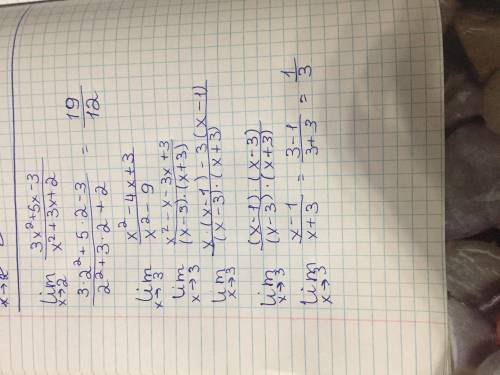 lim x→2 (3x²+5x-3)/(x²+3x+2)
(3·2²+5·2-3)/(2²+3·2+2) = 19/12
lim x→3 (x²-4x+3)/(x²-9)
lim x→3 (x²-x-3x+3)/((x-3)·(x+3))
lim x→3 (x(x-1)-3(x-1))/((x-3)·(x+3))
lim x→3 ((x-1)·(x-3))/((x-3)·(x+3))
lim x→3 (x-1)/(x+3) = (3-1)/(3+3) = 1/3